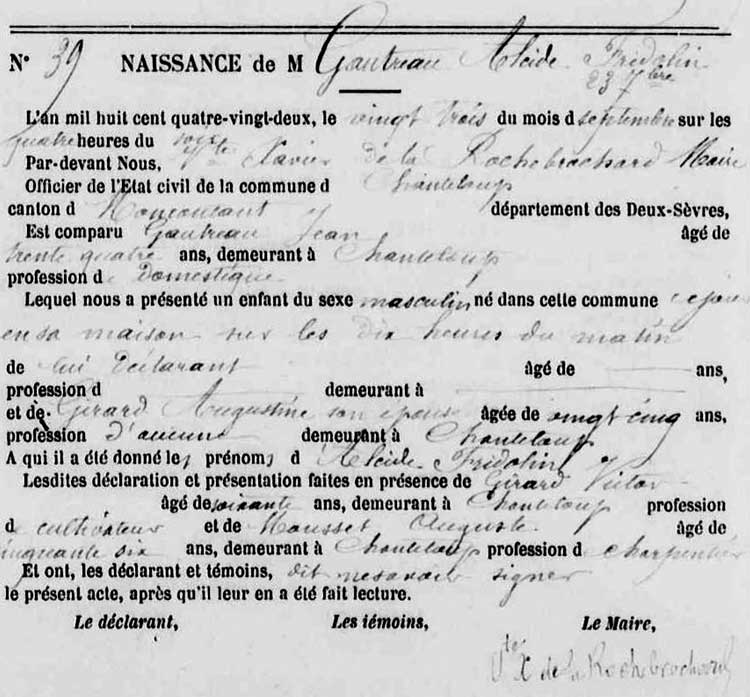 N° 39 NAISSANCE de M Gautreau Alcide Fridolin
23 7bre
L'an mil huit cent quatre-vingt-deux, le vingt trois du mois d septembre sur les
quatre heures du soir
Par-devant Nous, Vte Xavier de la Rochebrochard Maire
Officier de l'Etat civil de la commune d Chanteloup
canton d Moncoutant département des Deux-Sèvres,
Est comparu Gautreau Jean âgé de
trente quatre ans, demeurant à Chanteloup
profession de Domestique
Lequel nous a présenté un enfant du sexe masculin né dans cette commune ce jour
en sa maison sur les dix heures du matin
de lui déclarant âgé de ans,
profession d demeurant à
et de Girard Augustine son épouse âgée de vingt cinq ans,
profession d'aucune demeurant à Chanteloup
A qui il a été donné les prénoms d Alcide Fridolin
Lesdites déclaration et présentation faites en présence de Girard Victor
âgé de soixante ans, demeurant à Chanteloup profession
de cultivateur et de Mousset Auguste âgé de
cinquante six ans, demeurant à Chanteloup profession de charpentier
Et ont, les déclarant et témoins, dit ne savoir signer
le présent acte, après qu'il leur en a été fait lecture.
Le déclarant, Les témoins, Le Maire,
Vte X de la Rochebrochard